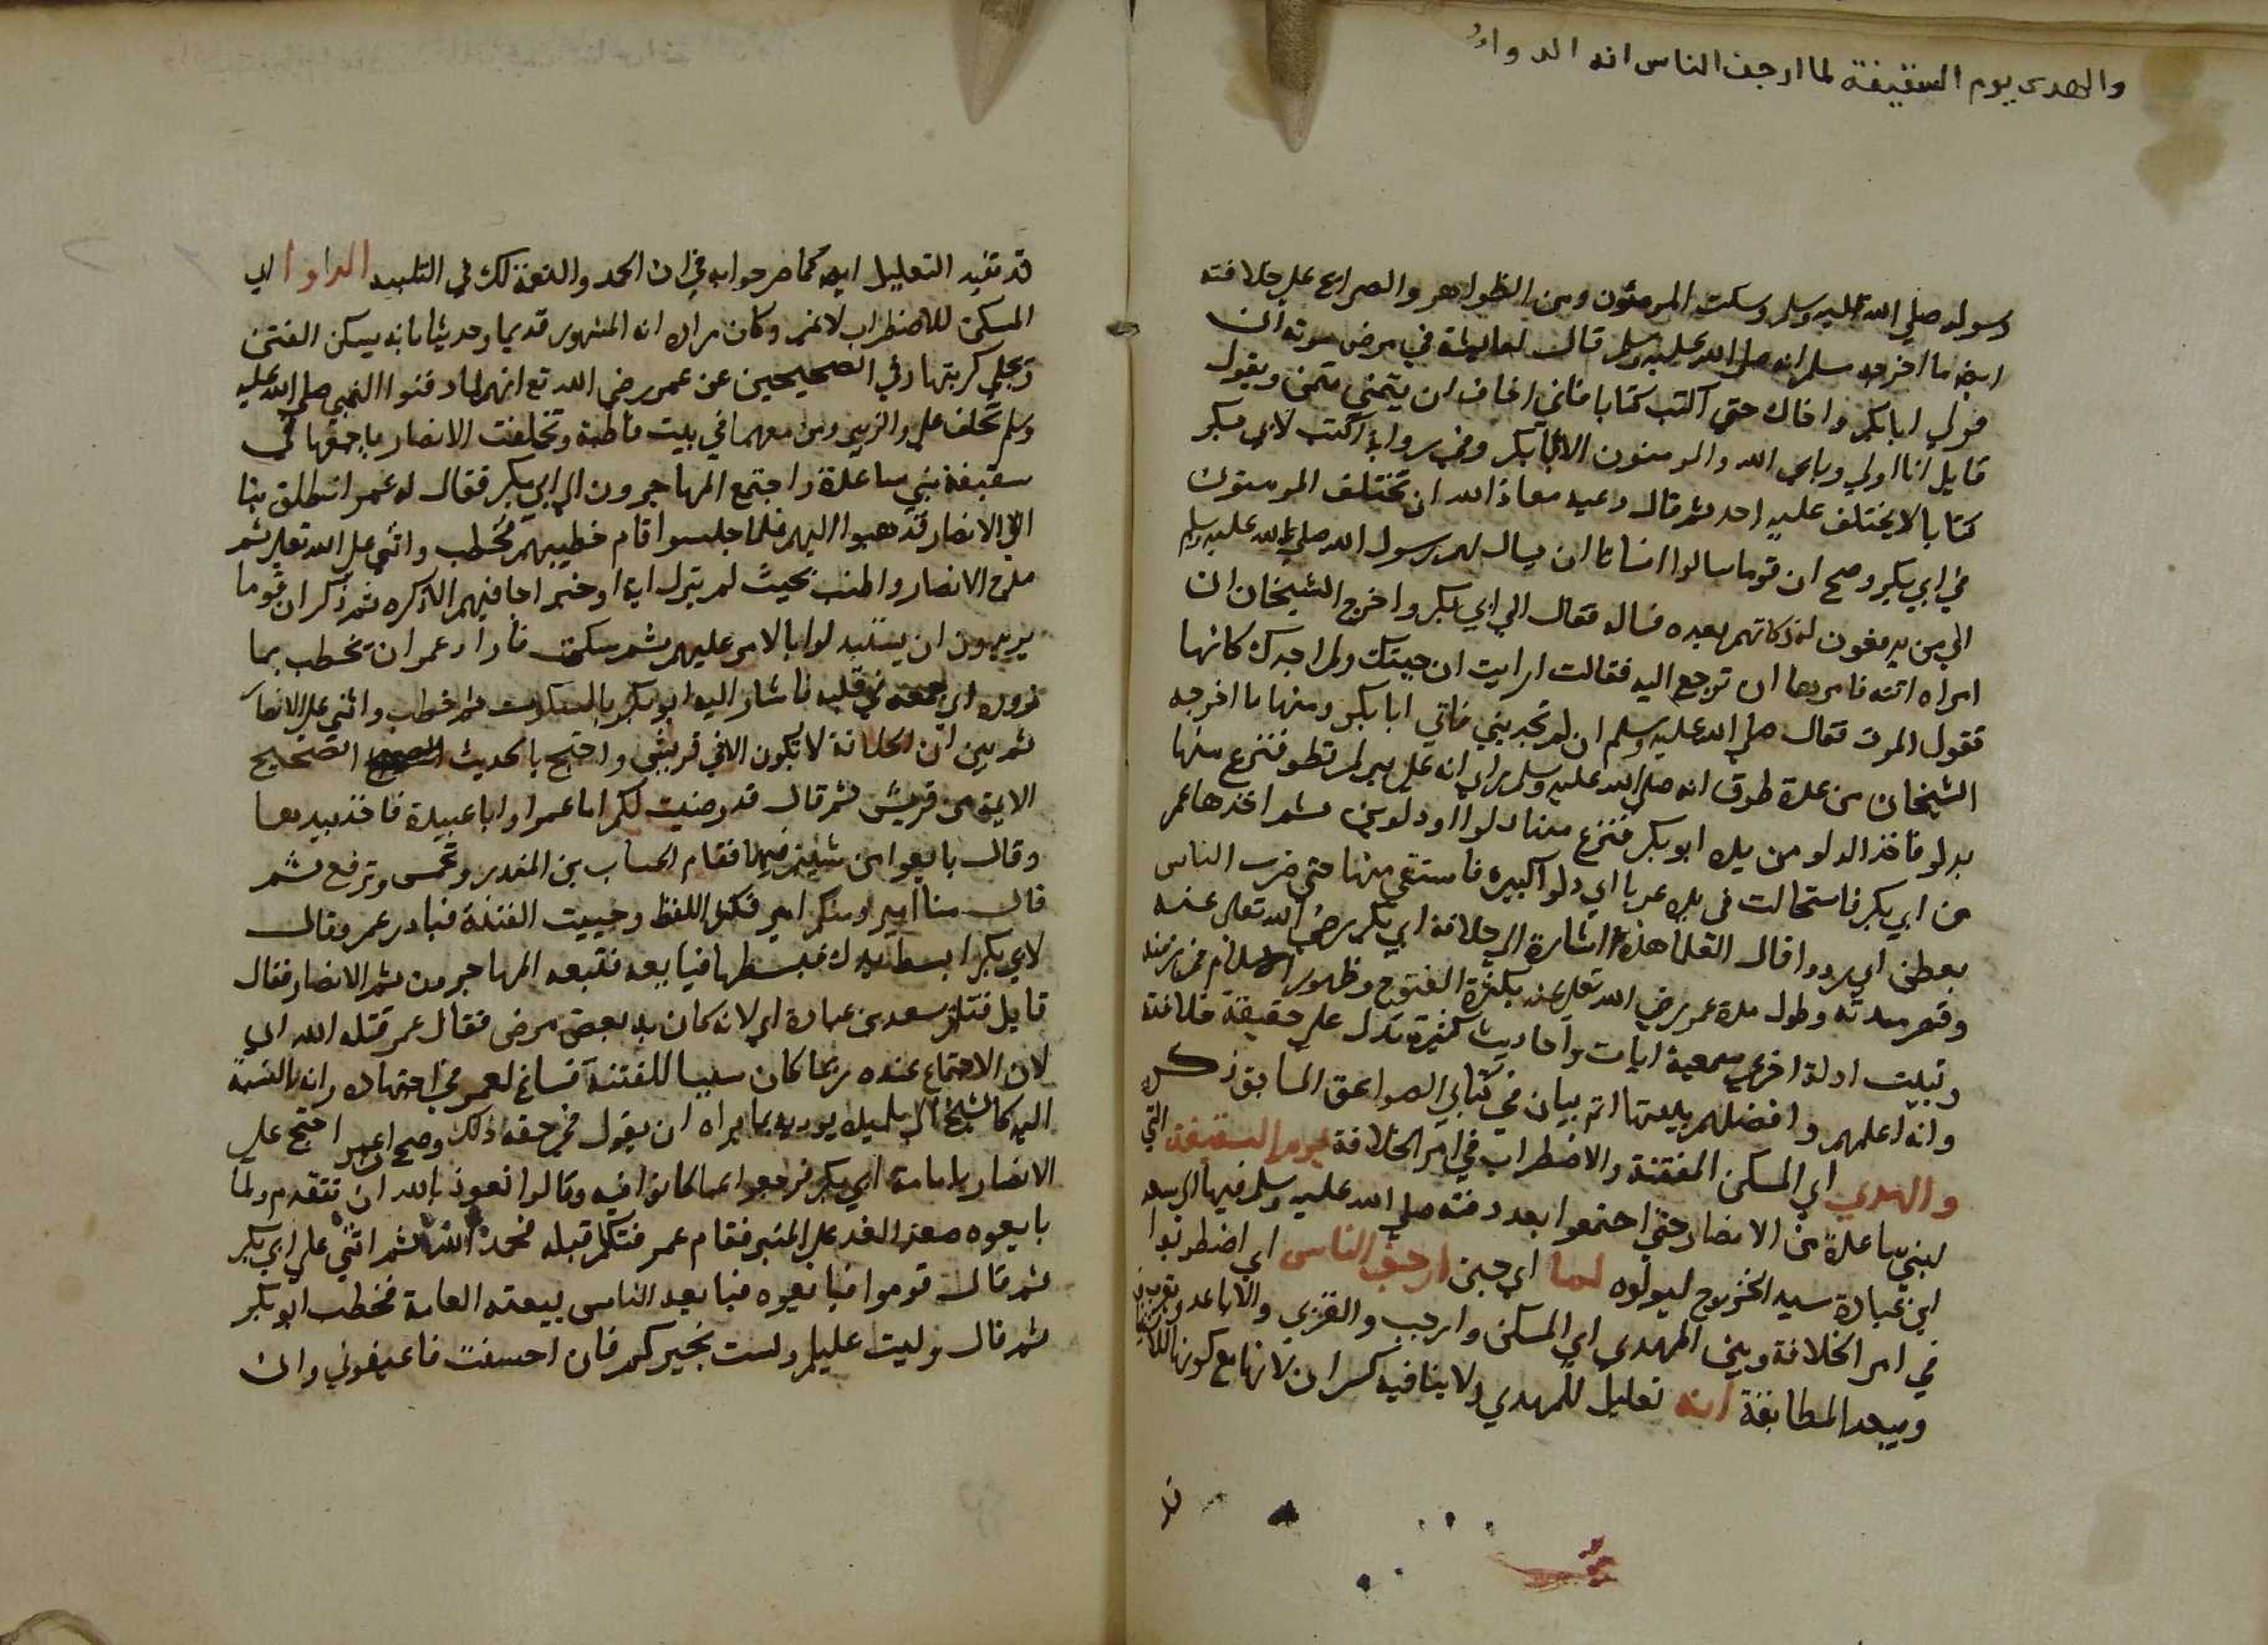 والمهدى يوم السقيفة لما ارجف الناس انه الدواد
رسوله صلي الله عليه وسلم وسكت المومنون ومن الظواهر والصرايح علي خلافته
ايضا ما اخرجه مسلم انه صلي الله عليه وسلم قال لعايشة في مرض موته ادعي
لي ابابكر واخاك حتي اكتب كتابا فاني اخاف ان يتمني متمن ويقول
قايل انا اولي ويابي الله والمومنون الا ابابكر وفي رواية اكتب لابي بكر
كتابا لا يختلف عليه احد ثم قال دعيه معاذ الله ان تختلف المومنون
في ابي بكر وصح ان قوما سالوا انسانا ان يسال لهم رسول الله صلي الله عليه وسلم
الي من يدفعون له زكاتهم بعده فساله فقال الي ابي بكر واخرج الشيخان ان
امراه اتته فامرها ان ترجع اليه فقالت ارايت ان جيتك ولم اجدك كانها
تقول الموت فقال صلي الله عليه وسلم ان لم تجديني فاتي ابابكر ومنها ما اخرجه
الشيخان من عدة طرق انه صلي الله عليه وسلم راي انه علي بير لم تطو فنزع منها
بدلو فاخذ الدلو من يده ابو بكر فنزع منها دلوا او دلوين ثم اخذها عمر
من ابي بكر فاستحالت في يده غربا اي دلوا كبيره فاستقي منها حتي ضرب الناس
بعطن اي رووا قال العلما هذه اشارة الي خلافة ابي بكر رضي الله تعالي عنه
وقصر مدته وطول مدة عمر رضي الله تعالي عنه بكثرة الفتوح وظهور الاسلام في زمنه
وثبتت ادلة اخري سمعية ايات واحاديث كثيرة تدل علي حقيقة خلافته
وانه اعلمهم وافضلهم بينتها اتم بيان في كتابي الصواعق السابق ذكره
والمهدي اي المسكن للفتنة والاضطراب في امر الخلافة يوم السقيفة التي
لبني ساعدة من الانصار حتي اجتمعوا بعد دفنه صلي الله عليه وسلم فيها الي سعد
ابن عبادة سيد الخزرج ليولوه لما اي حين ارجف الناس اي اضطربوا
في امر الخلافة وبين المهدي اي المسكن وارجب والقربي والاباعد
وبيعد المطابقة انه تعليل للمهدي ولا ينافيه كسر ان لانها مع كونها للاستيناف
قد
قد تفيد التعليل ايضا كما صرحوا به في ان الحمد والنعمة لك في التلبيه الداوا اي
المسكن للاضطراب لا غير وكان مراده انه المشهور قديما وحديثا بانه يسكن الفتن
ويجلي كربتها وفي الصحيحين عن عمر رضي الله تع انهم لما دفنوا النبي صلي الله عليه
وسلم تخلف علي والزبير ومن معهما في بيت فاطمة وتخلفت الانصار باجمعها في
سقيفة بني ساعدة واجتمع المهاجرون الي ابي بكر فقال له عمر انطلق بنا
الي الانصار فذهبوا اليهم فلما جلسوا قام خطيبهم فخطب واثني علي الله تعالي ثم
مدح الانصار واطنب بحيث لم يترك اية او خبرا جا فيهم الا ذكره ثم ذكر ان قوما
يريدون ان يستبدلوا بالامر عليهم ثم سكت فاراد عمر ان يخطب بما
زوره اي جمعه في قلبه فاشار اليه ابو بكر بالسكوت ثم خطب واثني علي الانصار
ثم بين ان الخلافة لا تكون الا في قريش واحتج بالحديث الصحيح
الايمة من قريش ثم قال قد رضيت لكم اما عمرا وابا عبيدة فاخذ بيدهما
وقال بايعوا من شيتم منهما فقام الحباب بن المنذر وتحمس وترفع ثم
قال منا امير ومنكم امير فكثر اللغظ وخييت الفتنة فبادر عمر وقال
لابي بكر ابسط يدك فبسطها فبايعه فتبعه المهاجرون ثم الانصار فقال
قايل قتلتم سعد بن عبادة اي لانه كان به بعض مرض فقال عمر قتله الله اي
لان الاجتماع عنده ربما كان سببا للفتنة فساغ لعمر في اجتهاده وانه بالنسبة
اليه كالشيخ الي تلميذه يوريه بما يراه ان يقول في حقه ذلك وصح ان عمر احتج علي
الانصار بامامة ابي بكر فرجعوا عما كانوا فيه وقالوا نعوذ بالله ان نتقدم ولما
بايعوه صعد الغد علي المنبر فقام عمر فتكلم قبله فحمد الله ثم اثني علي ابي بكر
ثم قال قوموا فبايعوه فبايعه الناس بيعته العامة فخطب ابو بكر
ثم قال وليت عليكم ولست بخيركم فان احسنت فاعينوني وان